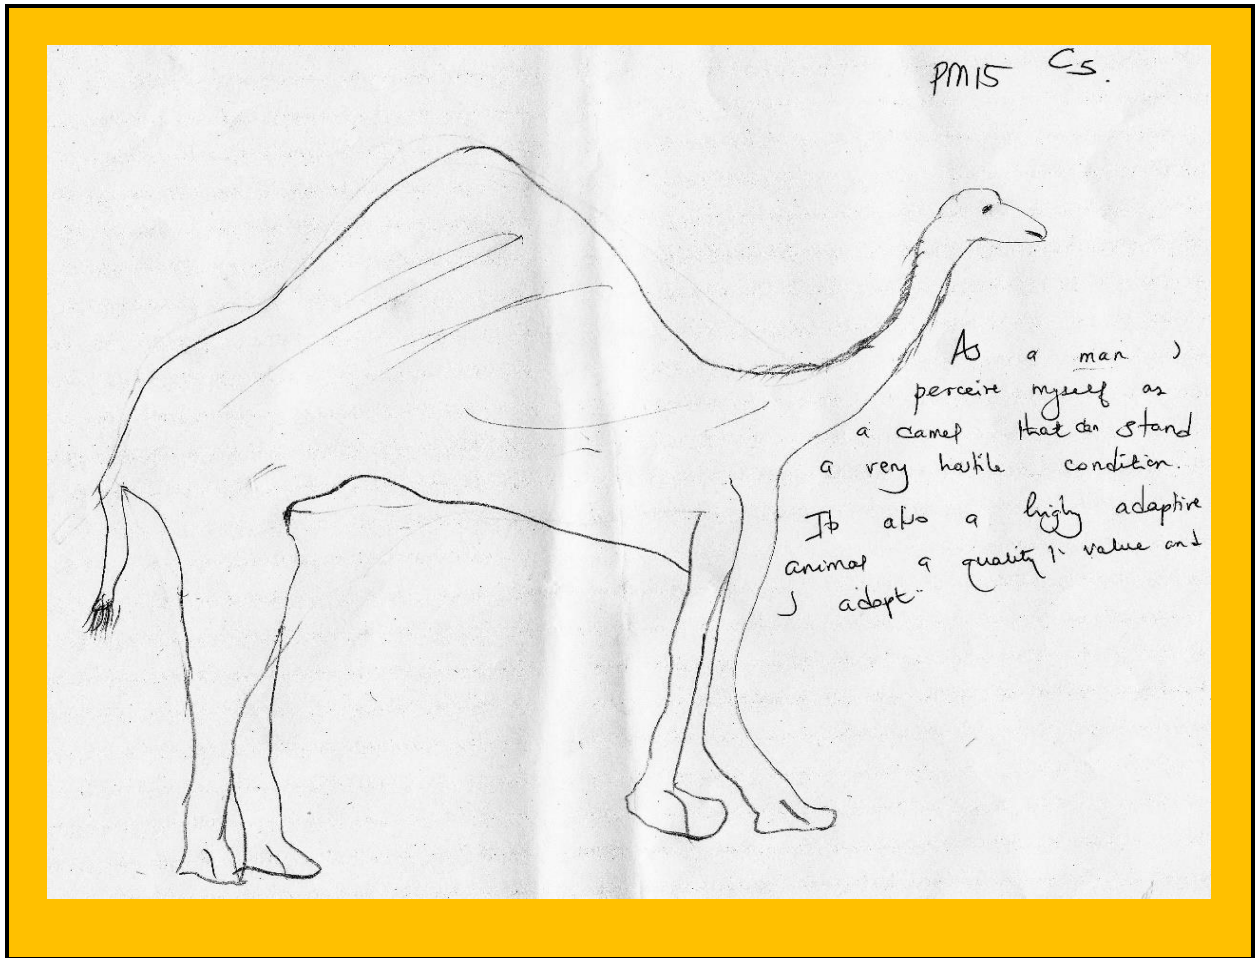 PM15 C5.
As a man I
perceive myself as
a camel that can stand
a very hostile condition.
Its also a highly adaptive
animal a quality I value and
I adopt